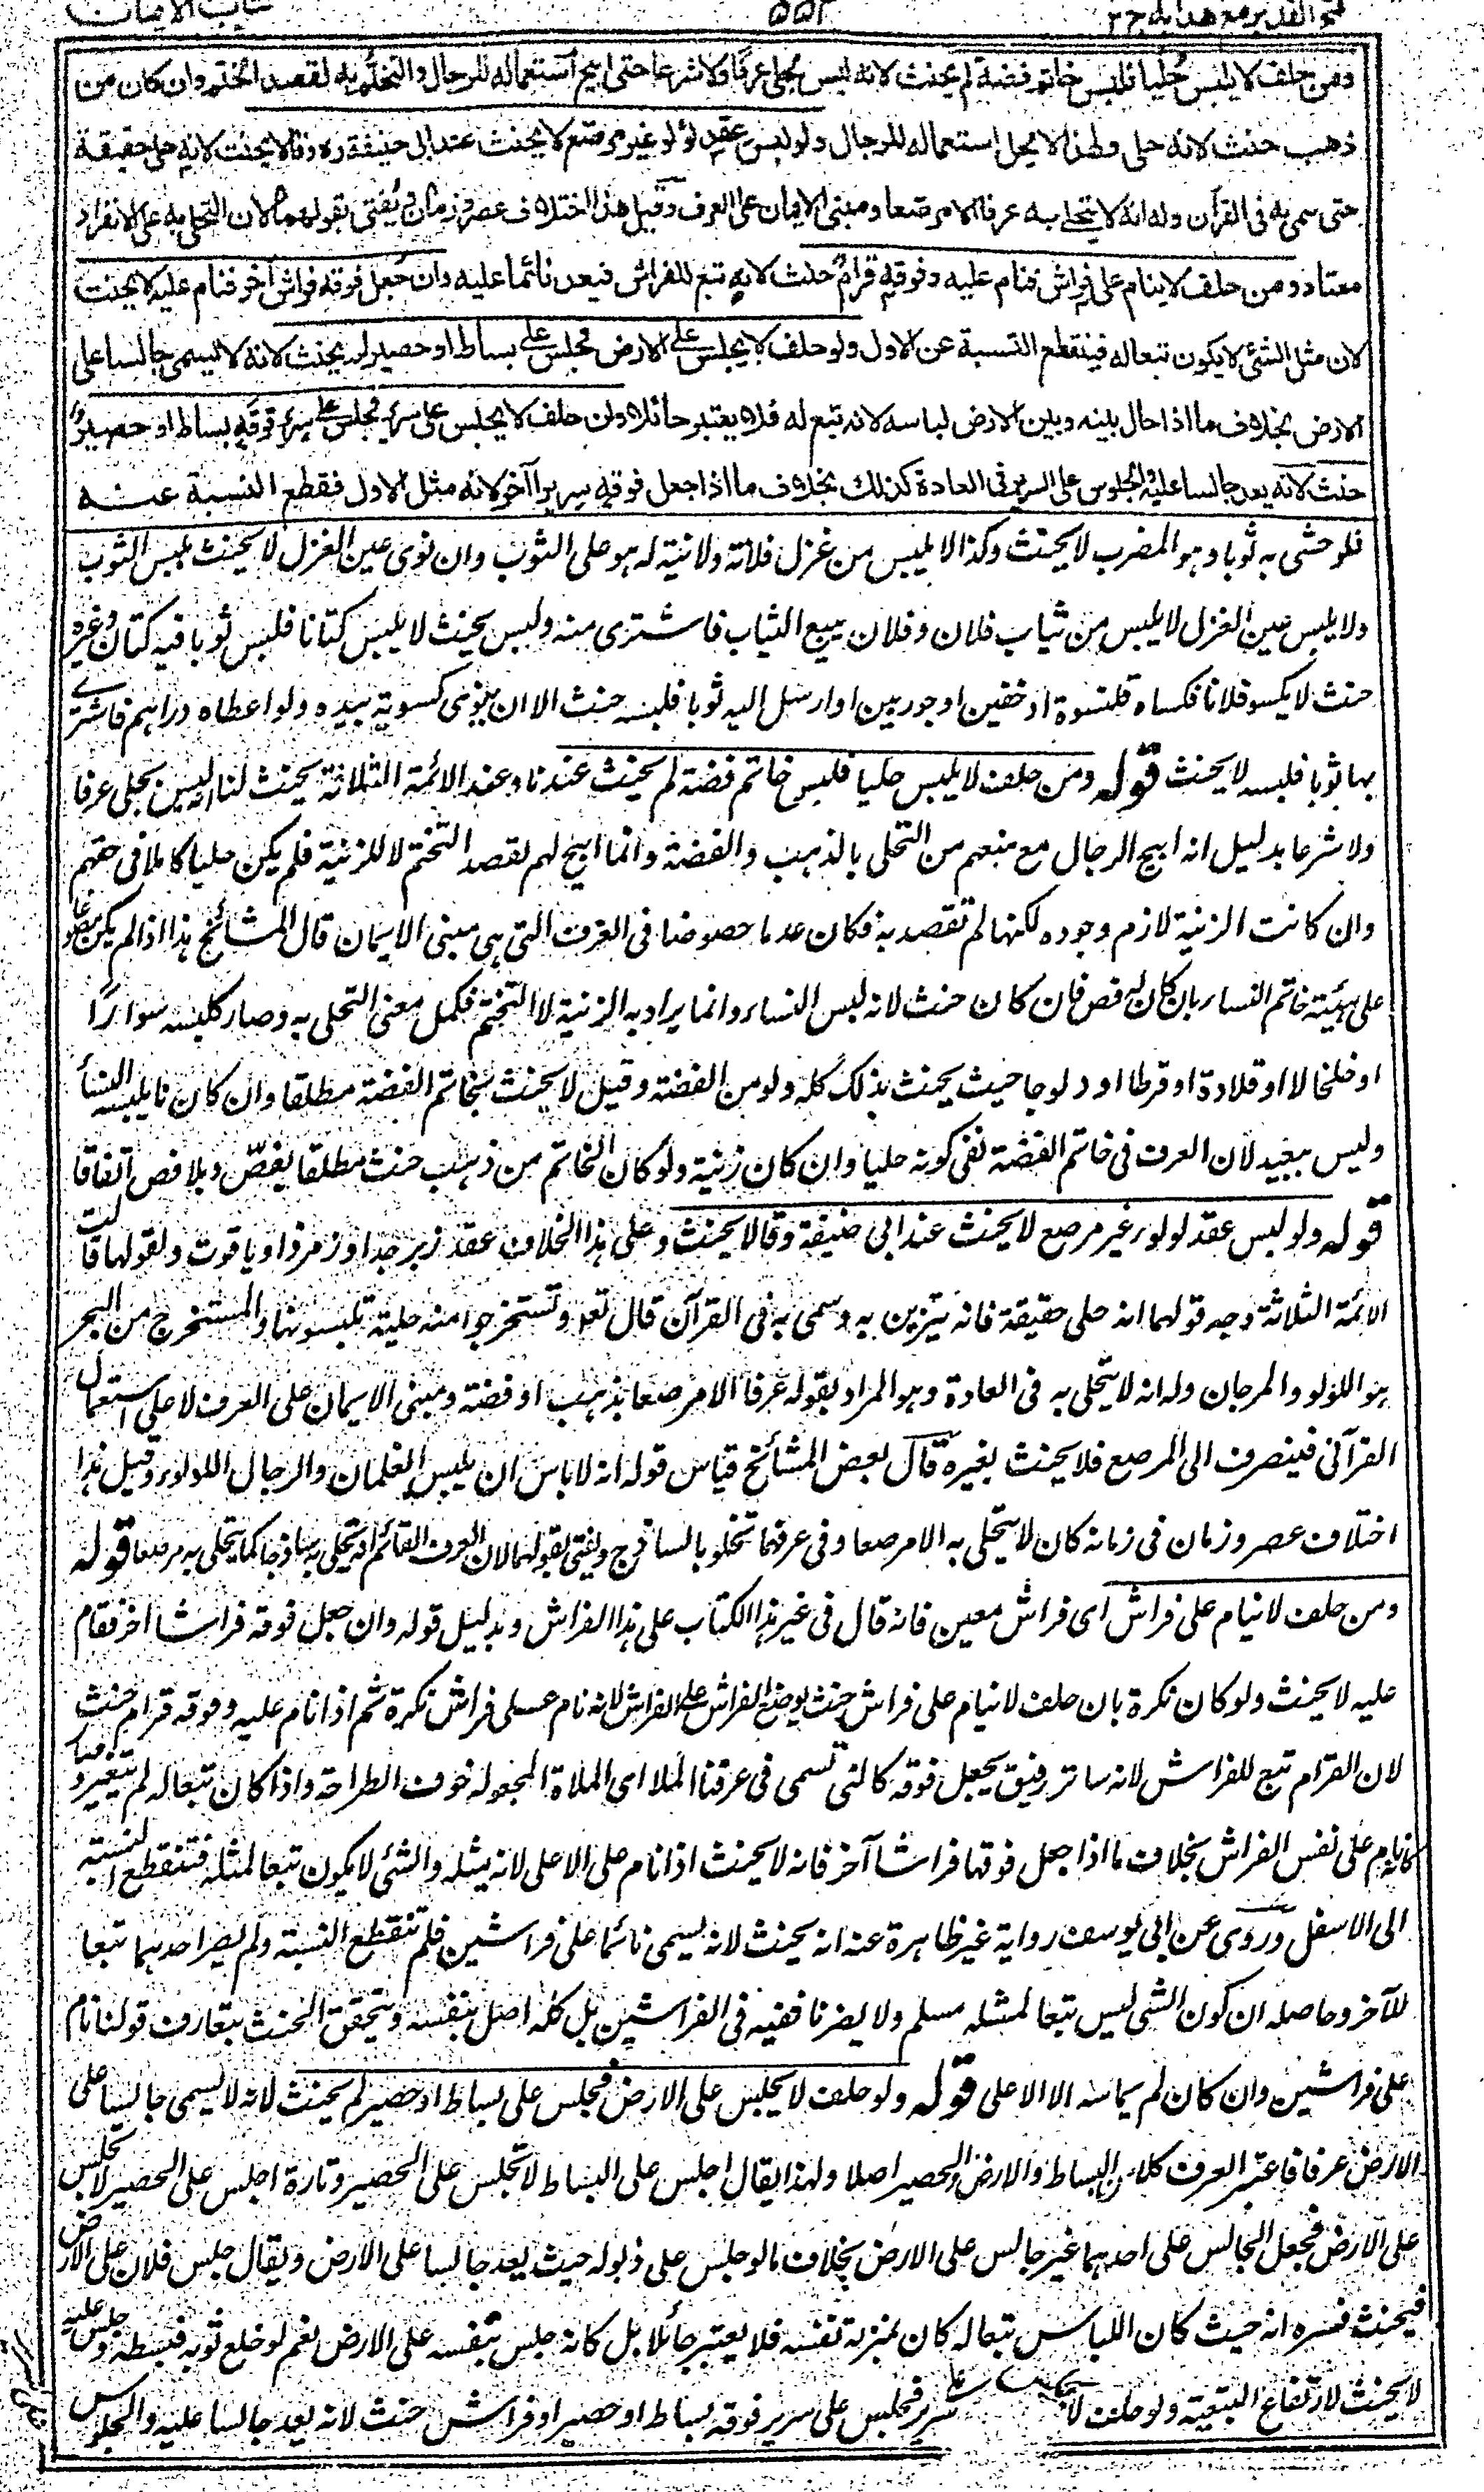 فتح القدير مع هدايه ج٢ ٥٥٢ كتاب الايمان
ومن حلف لا يلبس حُليا فلبس خاتم فضة لم يحنث لانه ليس بحُلي عرفًا ولا شرعا حتى ابيح استعماله للرجال والتختم به لقصد الختم وان كان من
ذهب حنث لانه حلي ولهذا لا يحل استعماله للرجال ولو لبس عقد لؤلؤ غير مرصّع لا يحنث عند ابي حنيفة ره وقالا يحنث لانه حلي حقيقة
حتى سمي به في القرآن وله انه لا يتحلى به عرفا الا مرصّعا ومبنى الايمان على العرف وقيل هذا اختلاف عصر وزمان ويُفتى بقولهما لان التحلي به على الانفراد
معتاد ومن حلف لا ينام على فراش فنام عليه وفوقه قرام حنث لانه تبع للفراش فيعد نائما عليه وان جُعل فوقه فراش آخر فنام عليه لا يحنث
لان مثل الشئ لا يكون تبعا له فينقطع النسبة عن الاول ولو حلف لا يجلس على الارض فجلس على بساط او حصير لم يحنث لانه لا يسمى جالسا على
الارض بخلاف ما اذا حال بينه وبين الارض لباسه لانه تبع له فلا يعتبر حائلا وان حلف لا يجلس على سرير فجلس على سرير فوقه بساط او حصير
حنث لانه يعد جالسا عليه والجلوس على السرير في العادة كذلك بخلاف ما اذا جعل فوقه سريرا آخر لانه مثل الاول فقطع النسبة عنه
فلو حشى به ثوبا وهو المضرب لا يحنث وكذا لا يلبس من غزل فلانة ولا نية له هو على الثوب وان نوى عين الغزل لا يحنث بلبس الثوب
ولا يلبس عين الغزل لا يلبس من ثياب فلان وفلان يبيع الثياب فاشترى منه ولبس يحنث لا يلبس كتانا فلبس ثوبا فيه كتان وغيره
حنث لا يكسو فلانا فكساه قلنسوة او خفين او جوربين او ارسل اليه ثوبا فلبسه حنث الا ان ينوي كسوته بيده ولو اعطاه دراهم فاشترے
بها ثوبا فلبسه لا يحنث قوله ومن حلف لا يلبس حليا فلبس خاتم فضة لم يحنث عندنا وعند الائمة الثلاثة يحنث لنا انه ليس بحلي عرفا
ولا شرعا بدليل انه ابيح للرجال مع منعهم من التحلي بالذهب والفضة وانما ابيح لهم لقصد التختم لا للزينة فلم يكن حليا كاملا في حقهم
وان كانت الزينة لازم وجوده لكنها لم تقصد به فكان عدما خصوصا في العرف التي هي مبنى الايمان قال المشائخ هذا اذا لم يكن مصوغا
على هيئة خاتم النساء بان كان له فص فان كان حنث لانه لبس النساء وانما يراد به الزينة لا التختم فكمل معنى التحلي به وصار كلبسه سوارًا
او خلخالا او قلادة او قرطا او دلوجا حيث يحنث بذلك كله ولو من الفضة وقيل لا يحنث بخاتم الفضة مطلقا وان كان مما يلبسه النساء
وليس ببعيد لان العرف في خاتم الفضة نفى كونه حليا وان كان زينة ولو كان الخاتم من ذهب حنث مطلقا بفصّ وبلا فص اتفاقا
قوله ولو لبس عقد لؤلؤ غير مرصع لا يحنث عند ابي حنيفة وقالا يحنث وعلى هذا الخلاف عقد زبرجد او زمرذ او ياقوت ولقولهما قالت
الائمة الثلاثة وجه قولهما انه حلي حقيقة فانه يتزين به وسمى به في القرآن قال تعه وتستخرجوا منه حلية تلبسونها والمستخرج من البحر
هو اللؤلؤ والمرجان وله انه لا يتحلى به في العادة وهو المراد بقوله عرفا الا مرصعا بذهب او فضة ومبنى الايمان على العرف لا على استعمال
القرآني فينصرف الى المرصع فلا يحنث بغيره قال بعض المشائخ قياس قوله انه لا باس ان يلبس الغلمان والرجال اللؤلؤ وقيل هذا
اختلاف عصر وزمان في زمانه كان لا يتحلى به الا مرصعا وفي عرفهما تحلوا بالساذج ويفتى بقولهما لان العرف القائم انه يتحلى به ساذجا كما يتحلى به مرصعا قوله
ومن حلف لا ينام على فراش اى فراش معين فانه قال في غير هذا الكتاب على هذا الفراش وبدليل قوله وان جعل فوقه فراشا آخر فنام
عليه لا يحنث ولو كان نكرة بان حلف لا ينام على فراش حنث بوضع الفراش على الفراش لانه نام على فراش نكرة ثم اذا نام عليه وفوقه قرام حنث
لان القرام تبع للفراش لانه ساتر رقيق يجعل فوقه كالتي تسمى في عرفنا الملا اى الملاة المجعولة فوق الطراحة واذا كان تبعا له لم يتغير وكان
كانه نام على نفس الفراش بخلاف ما اذا جعل فوقها فراشا آخر فانه لا يحنث اذا نام على الاعلى لانه مثله والشئ لا يكون تبعا لمثله فتنقطع النسبة
الى الاسفل وروى عن ابي يوسف رواية غير ظاهرة عنه انه يحنث لانه يسمى نائما على فراشين فلم تنقطع النسبة ولم يصر احدهما تبعا
للآخر وحاصله ان كون الشئ ليس تبعا لمثله مسلم ولا يضرنا نفيه في الفراشين بل كله اصل بنفسه ويتحقق الحنث بتعارف قولنا نام
على فراشين وان كان لم يماسه الا الاعلى قوله ولو حلف لا يجلس على الارض فجلس على بساط او حصير لم يحنث لانه لا يسمى جالسا على
الارض عرفا فاعتبر العرف كلا من البساط والارض والحصير اصلا ولهذا يقال اجلس على البساط لا تجلس على الحصير وتارة اجلس على الحصير لا تجلس
على الارض فجعل الجالس على احدهما غير جالس على الارض بخلاف ما لو جلس على ذيوله حيث يعد جالسا على الارض ويقال جلس فلان على الارض
فيحنث فسره انه حيث كان اللباس تبعا له كان بمنزلة نفسه فلا يعتبر حائلا بل كانه جلس بنفسه على الارض نعم لو خلع ثوبه فبسطه وجلس عليه
لا يحنث لارتفاع التبعية ولو حلف لا سرير فجلس على سرير فوقه بساط او حصير او فراش حنث لانه يعد جالسا عليه والجلوس